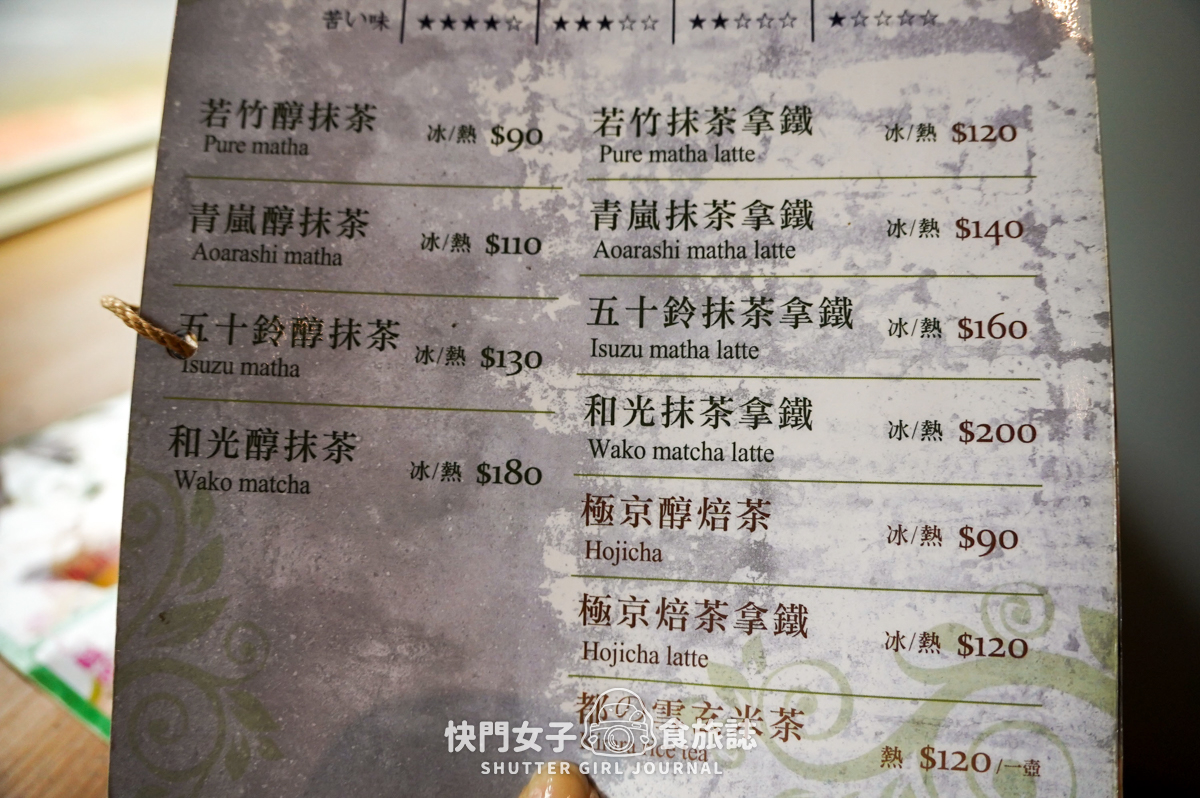 苦い味 ★★★★☆ ★★★☆☆ ★★☆☆☆ ★☆☆☆☆
若竹醇抹茶 冰/熱 $90
Pure matha
青嵐醇抹茶 冰/熱 $110
Aoarashi matha
五十鈴醇抹茶 冰/熱 $130
Isuzu matha
和光醇抹茶 冰/熱 $180
Wako matcha
若竹抹茶拿鐵 冰/熱 $120
Pure matha latte
青嵐抹茶拿鐵 冰/熱 $140
Aoarashi matha latte
五十鈴抹茶拿鐵 冰/熱 $160
Isuzu matha latte
和光抹茶拿鐵 冰/熱 $200
Wako matcha latte
極京醇焙茶 冰/熱 $90
Hojicha
極京焙茶拿鐵 冰/熱 $120
Hojicha latte
都の雲玄米茶 熱 $120/一壺
rice tea
快門女子 食旅誌
SHUTTER GIRL JOURNAL